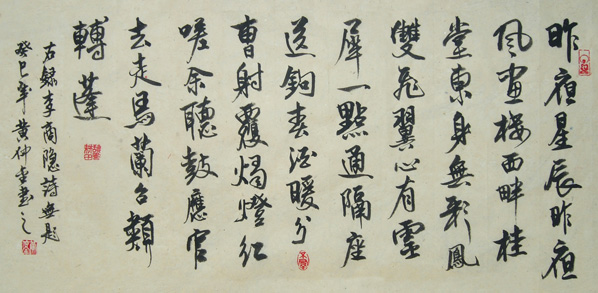 昨夜星辰昨夜
风畫楼西畔桂
堂東身無彩鳳
雙飛翼心有靈
犀一點通隔座
送鉤春酒暖分
曹射覆燭燈紅
嗟余聽鼓應官
去走馬蘭台類
轉蓬
右録李商隐詩無題
癸巳年黄仲書之